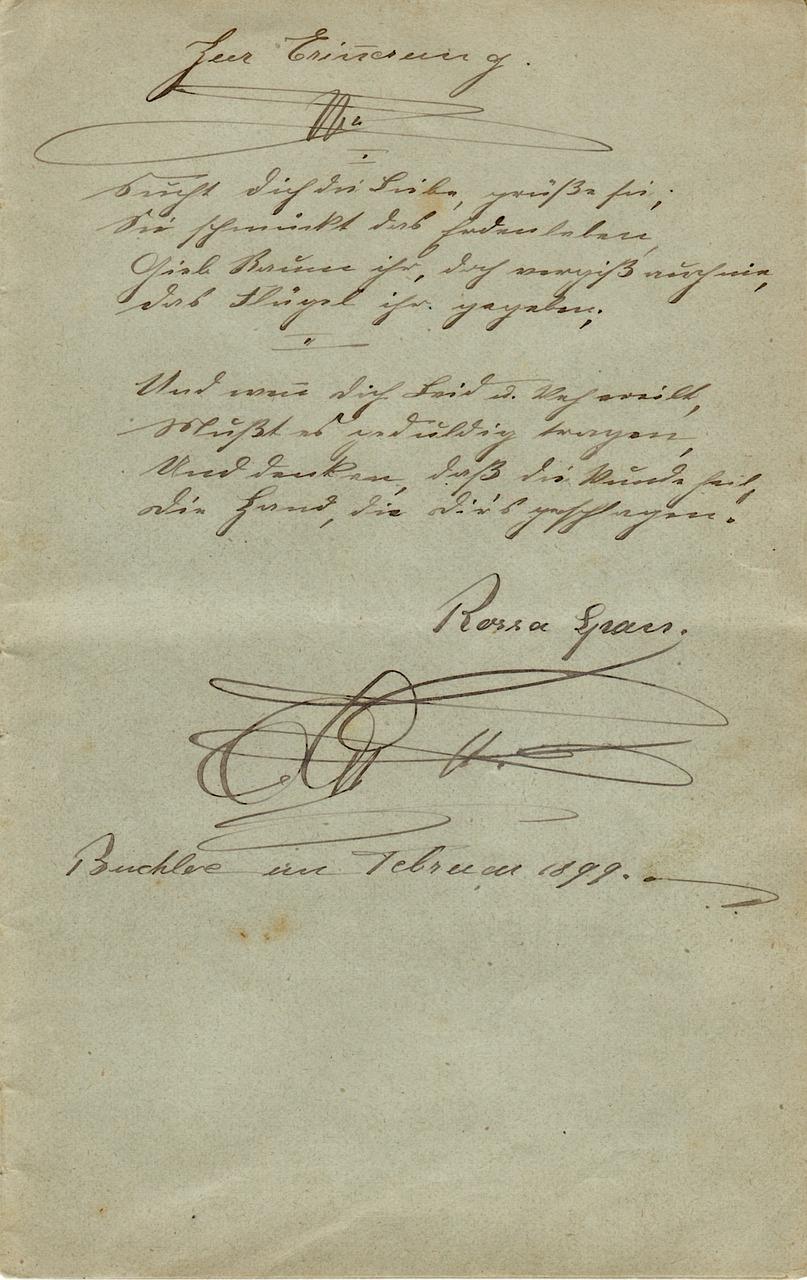 Zur Erinnerung.
Sucht dich die Liebe, grüße sie;
Sie schmückt das Erdenleben,
Gieb Raum ihr, doch vergiß auch nie,
das Flügel ihr gegeben;
Und wen̄ dich Leid u. Weh ereilt,
Mußt es geduldig tragen,
Und denken, daß die Wunde heil,
die Hand, die dir's geschlagen.
Rossa
Buchloe im Februar 1899.